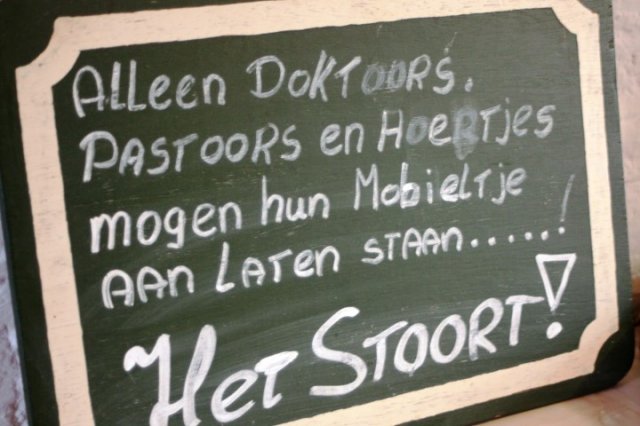 Alleen Doktoors.
Pastoors en Hoertjes
mogen hun Mobieltje
aan laten staan.....!
Het Stoort!